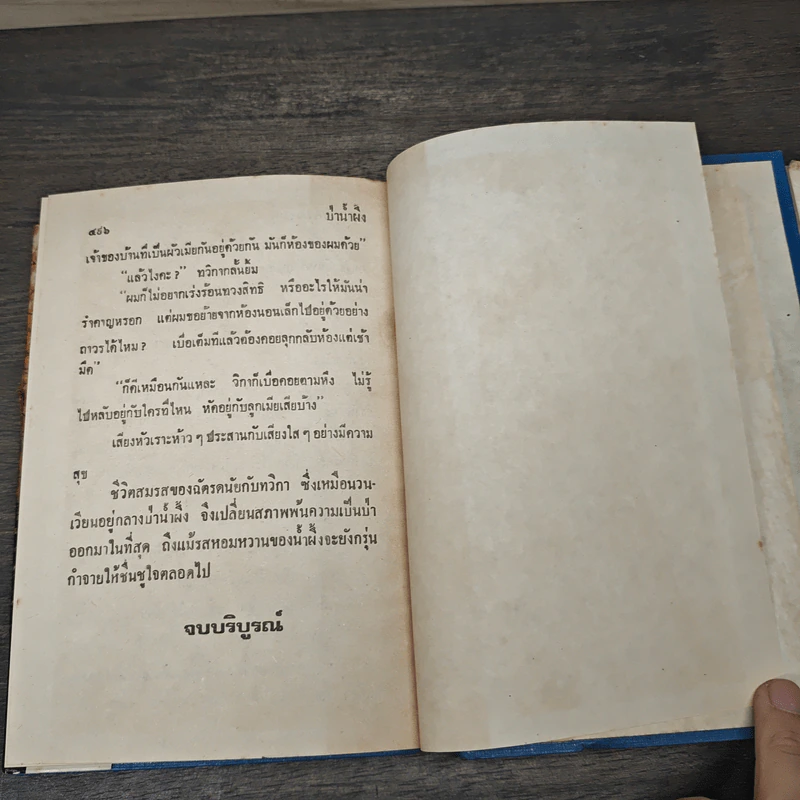 ๕๙๖
ป่าน้ำผึ้ง
เจ้าของบ้านที่เป็นผัวเมียกันอยู่ด้วยกัน มันก็ห้องของผมด้วย”
“แล้วไงคะ ?” ทวิกากลั้นยิ้ม
“ผมก็ไม่อยากเร่งร้อนทวงสิทธิ หรืออะไรให้มันน่า
รำคาญหรอก แต่ผมขอย้ายจากห้องนอนเล็กไปอยู่ด้วยอย่าง
ถาวรได้ไหม ? เบื่อเต็มทีแล้วต้องคอยลุกกลับห้องแต่เช้า
มืด”
“ก็ดีเหมือนกันแหละ วิกาก็เบื่อคอยตามหึง ไม่รู้
ไปหลับอยู่กับใครที่ไหน หัดอยู่กับลูกเมียเสียบ้าง”
เสียงหัวเราะห้าว ๆ ประสานกับเสียงใส ๆ อย่างมีความ
สุข
ชีวิตสมรสของฉัตรดนัยกับทวิกา ซึ่งเหมือนวน-
เวียนอยู่กลางป่าน้ำผึ้ง จึงเปลี่ยนสภาพพ้นความเป็นป่า
ออกมาในที่สุด ถึงแม้รสหอมหวานของน้ำผึ้งจะยังกรุ่น
กำจายให้ชื่นชูใจตลอดไป
จบบริบูรณ์